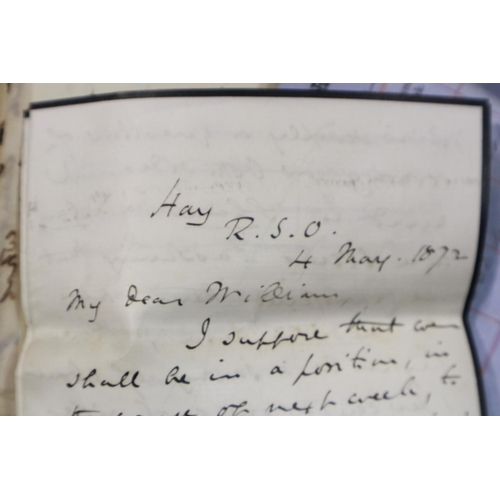 Hay
R. S. O.
4 May. 1872
My dear William,
I suppose that we
shall be in a position, in
of next week, to